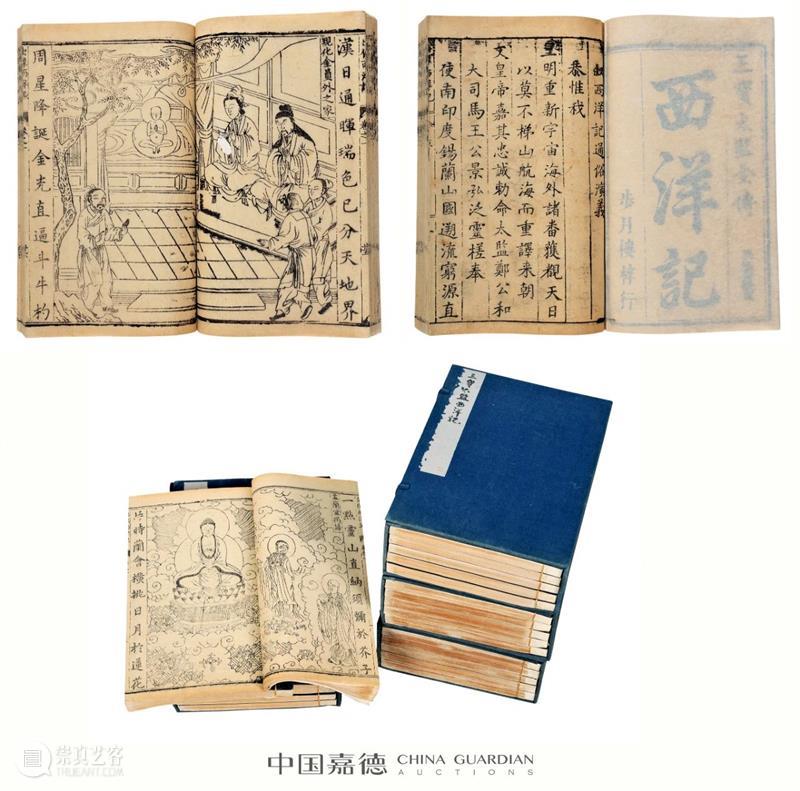 漢日通暉瑞色已分天地界
現化金員外之家
周星降誕金光直逼斗牛杓
西洋記
步月樓梓行
叙西洋記通俗演義
恭惟我
皇明重新宇宙海外諸番獲覩天日
以莫不梯山航海而重譯來朝
文皇帝嘉其忠誠勅命太監鄭公和
大司馬王公景弘泛靈槎奉
使南印度錫蘭山國遡流窮源直
三寶太監西洋記
一點靈山直納須彌於芥子
時蘭會橫挑日月於蓮花
崇真艺客
TRUEART.COM
中国嘉德 CHINA GUARDIAN
AUCTIONS